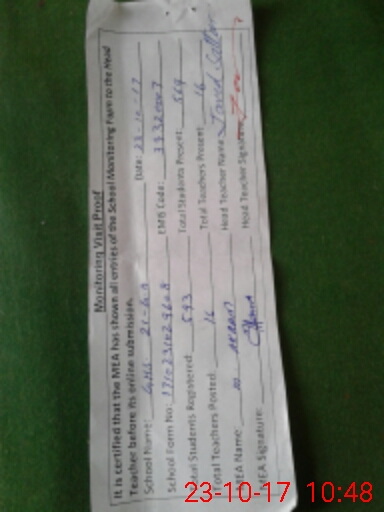 Monitoring Visit Proof
It is certified that the MEA has shown all entries of the School Monitoring Form to the Head
Teacher before its online submission.
School Name: GHS Date: 23-10-17
School Form No: EMIS Code:
Total Students Registered: 593 Total Students Present: 569
Total Teachers Posted: 16 Total Teachers Present: 16
MEA Name: M. AKRAM Head Teacher Name: Javed
MEA Signature: Head Teacher Signature:
23-10-17 10:48